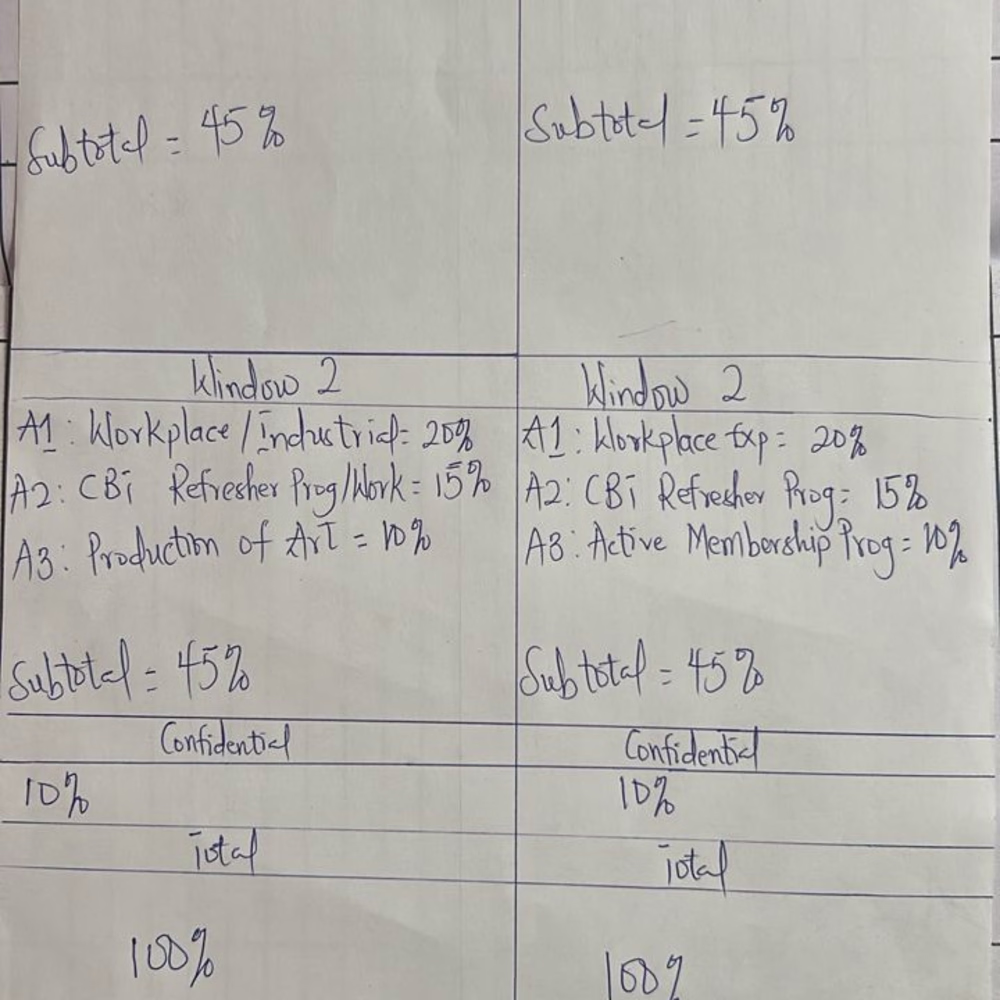 Subtotal = 45%
Window 2
A1: Workplace/Industrial = 20%
A2: CBI Refresher Prog/Work = 15%
A3: Production of Art = 10%
Subtotal = 45%
Confidential
10%
Total
100%
Subtotal = 45%
Window 2
A1: Workplace Exp = 20%
A2: CBI Refresher Prog = 15%
A3: Active Membership Prog = 10%
Subtotal = 45%
Confidential
10%
Total
100%